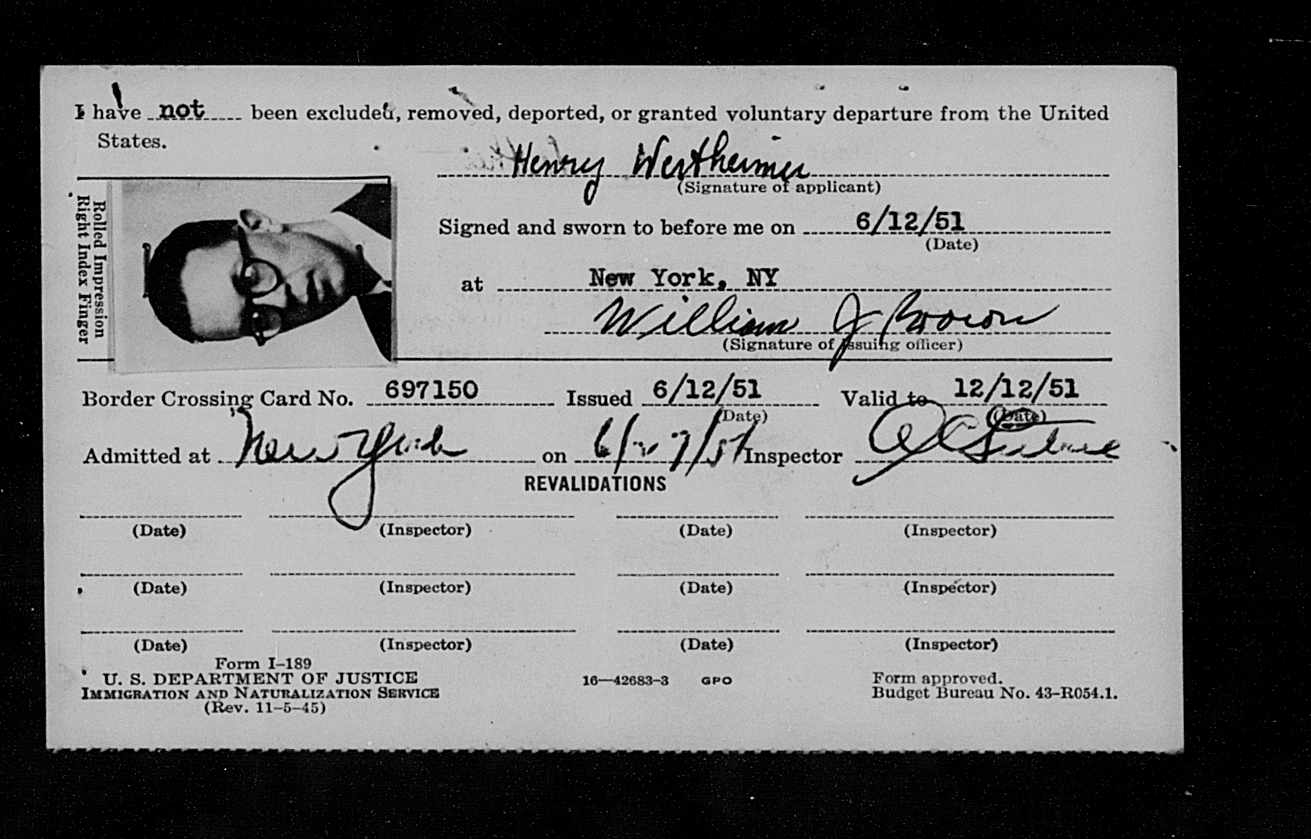 I have not been excluded, removed, deported, or granted voluntary departure from the United
States.
Henry Wertheimer
(Signature of applicant)
Rolled Impression
Right Index Finger
Signed and sworn to before me on 6/12/51
(Date)
at New York, NY
William J Brown
(Signature of issuing officer)
Border Crossing Card No. 697150 Issued 6/12/51 Valid to 12/12/51
(Date) (Date)
Admitted at New York on 6/27/51 Inspector
REVALIDATIONS
(Date) (Inspector) (Date) (Inspector)
(Date) (Inspector) (Date) (Inspector)
(Date) (Inspector) (Date) (Inspector)
Form I-189
U. S. DEPARTMENT OF JUSTICE 16—42683-3 GPO Form approved.
IMMIGRATION AND NATURALIZATION SERVICE Budget Bureau No. 43-R054.1.
(Rev. 11-5-45)